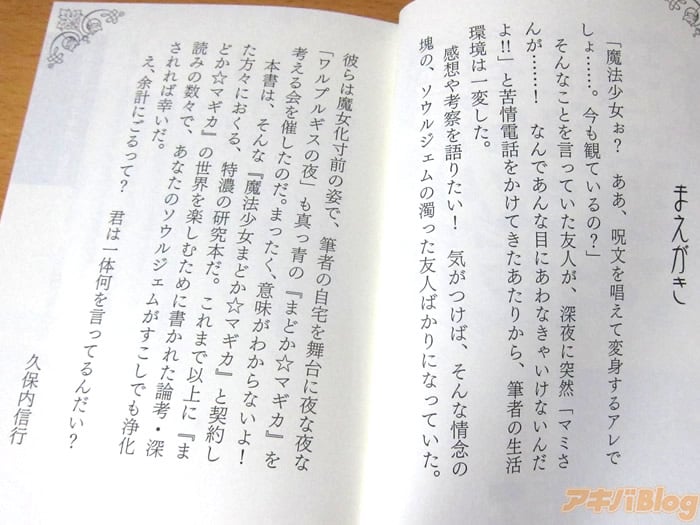 まえがき
「魔法少女ぉ？　ああ、呪文を唱えて変身するアレで
しょ……。今も観ているの？」
そんなことを言っていた友人が、深夜に突然「マミさ
んが……！　なんであんな目にあわなきゃいけないんだ
よ!!」と苦情電話をかけてきたあたりから、筆者の生活
環境は一変した。
感想や考察を語りたい！　気がつけば、そんな情念の
塊の、ソウルジェムの濁った友人ばかりになっていた。
彼らは魔女化寸前の姿で、筆者の自宅を舞台に夜な夜な
「ワルプルギスの夜」も真っ青の『まどか☆マギカ』を
考える会を催したのだ。まったく、意味がわからないよ！
本書は、そんな『魔法少女まどか☆マギカ』と契約し
た方々におくる、特濃の研究本だ。これまで以上に『ま
どか☆マギカ』の世界を楽しむために書かれた論考・深
読みの数々で、あなたのソウルジェムがすこしでも浄化
されれば幸いだ。
え、余計にごるって？　君は一体何を言ってるんだい？
久保内信行
アキバBlog